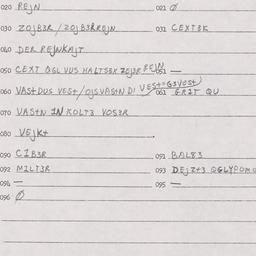 020 REJN 021 Ø
030 ZOJB3R/ZOJB3RREJN 031 CEXT3K
040 DER REJNKAJT
050 CEXT OGL VUS HALTS3K ZOJ3R REJN —
060 VAS+DUS VEST/OJSVAS+N DI VEST=G3VOST/ 061 GR2T QU
070 VAS+N IN KOLT3 VOS3R
080 VEJK+
090 CIB3R 091 BAL83
092 M2LT3R 093 DEJZ+3
094 — 095 —
096 Ø